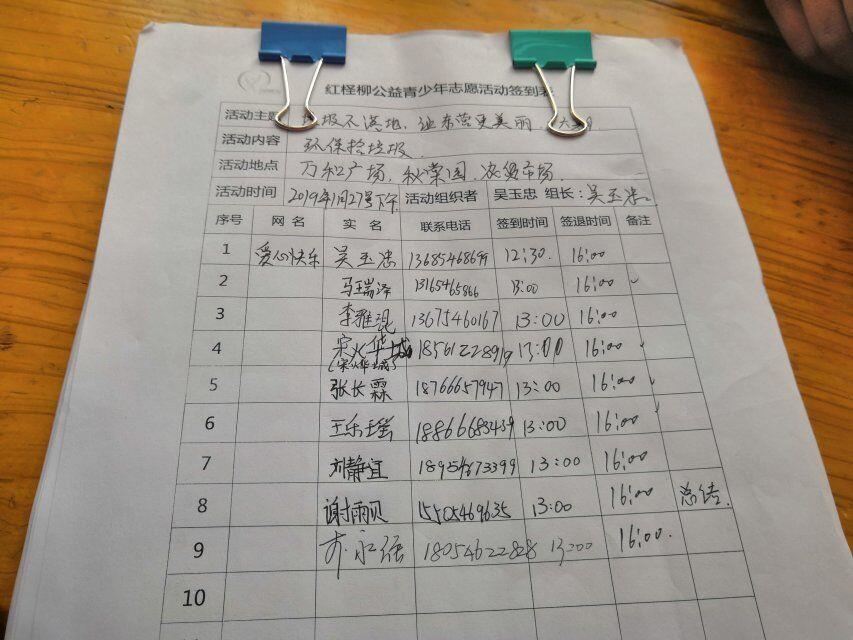 红柽柳公益青少年志愿活动签到表
活动主题 垃圾不落地,让东营更美丽
活动内容 环保捡垃圾.
活动地点 万和广场.秋荣园.农贸市场.
活动时间 2019年1月27号下午 活动组织者 吴玉忠 组长: 吴玉忠
序号 网名 实名 联系电话 签到时间 签退时间 备注
1 爱心快乐 吴玉忠 12:30. 16:00
2 马瑞泽 13165465866 13:00 16:00
3 李雅 13675460167 13:00 16:00
4 18561228919 13:00 16:00
5 张长霖 18766657947 13:00 16:00
6 王乐瑶 18866683439 13:00 16:00
7 刘静宜 18954673399 13:00 16:00
8 谢雨贝 15505469635 13:00 16:00 总结.
9 永强 18054622828 13:00 16:00.
10